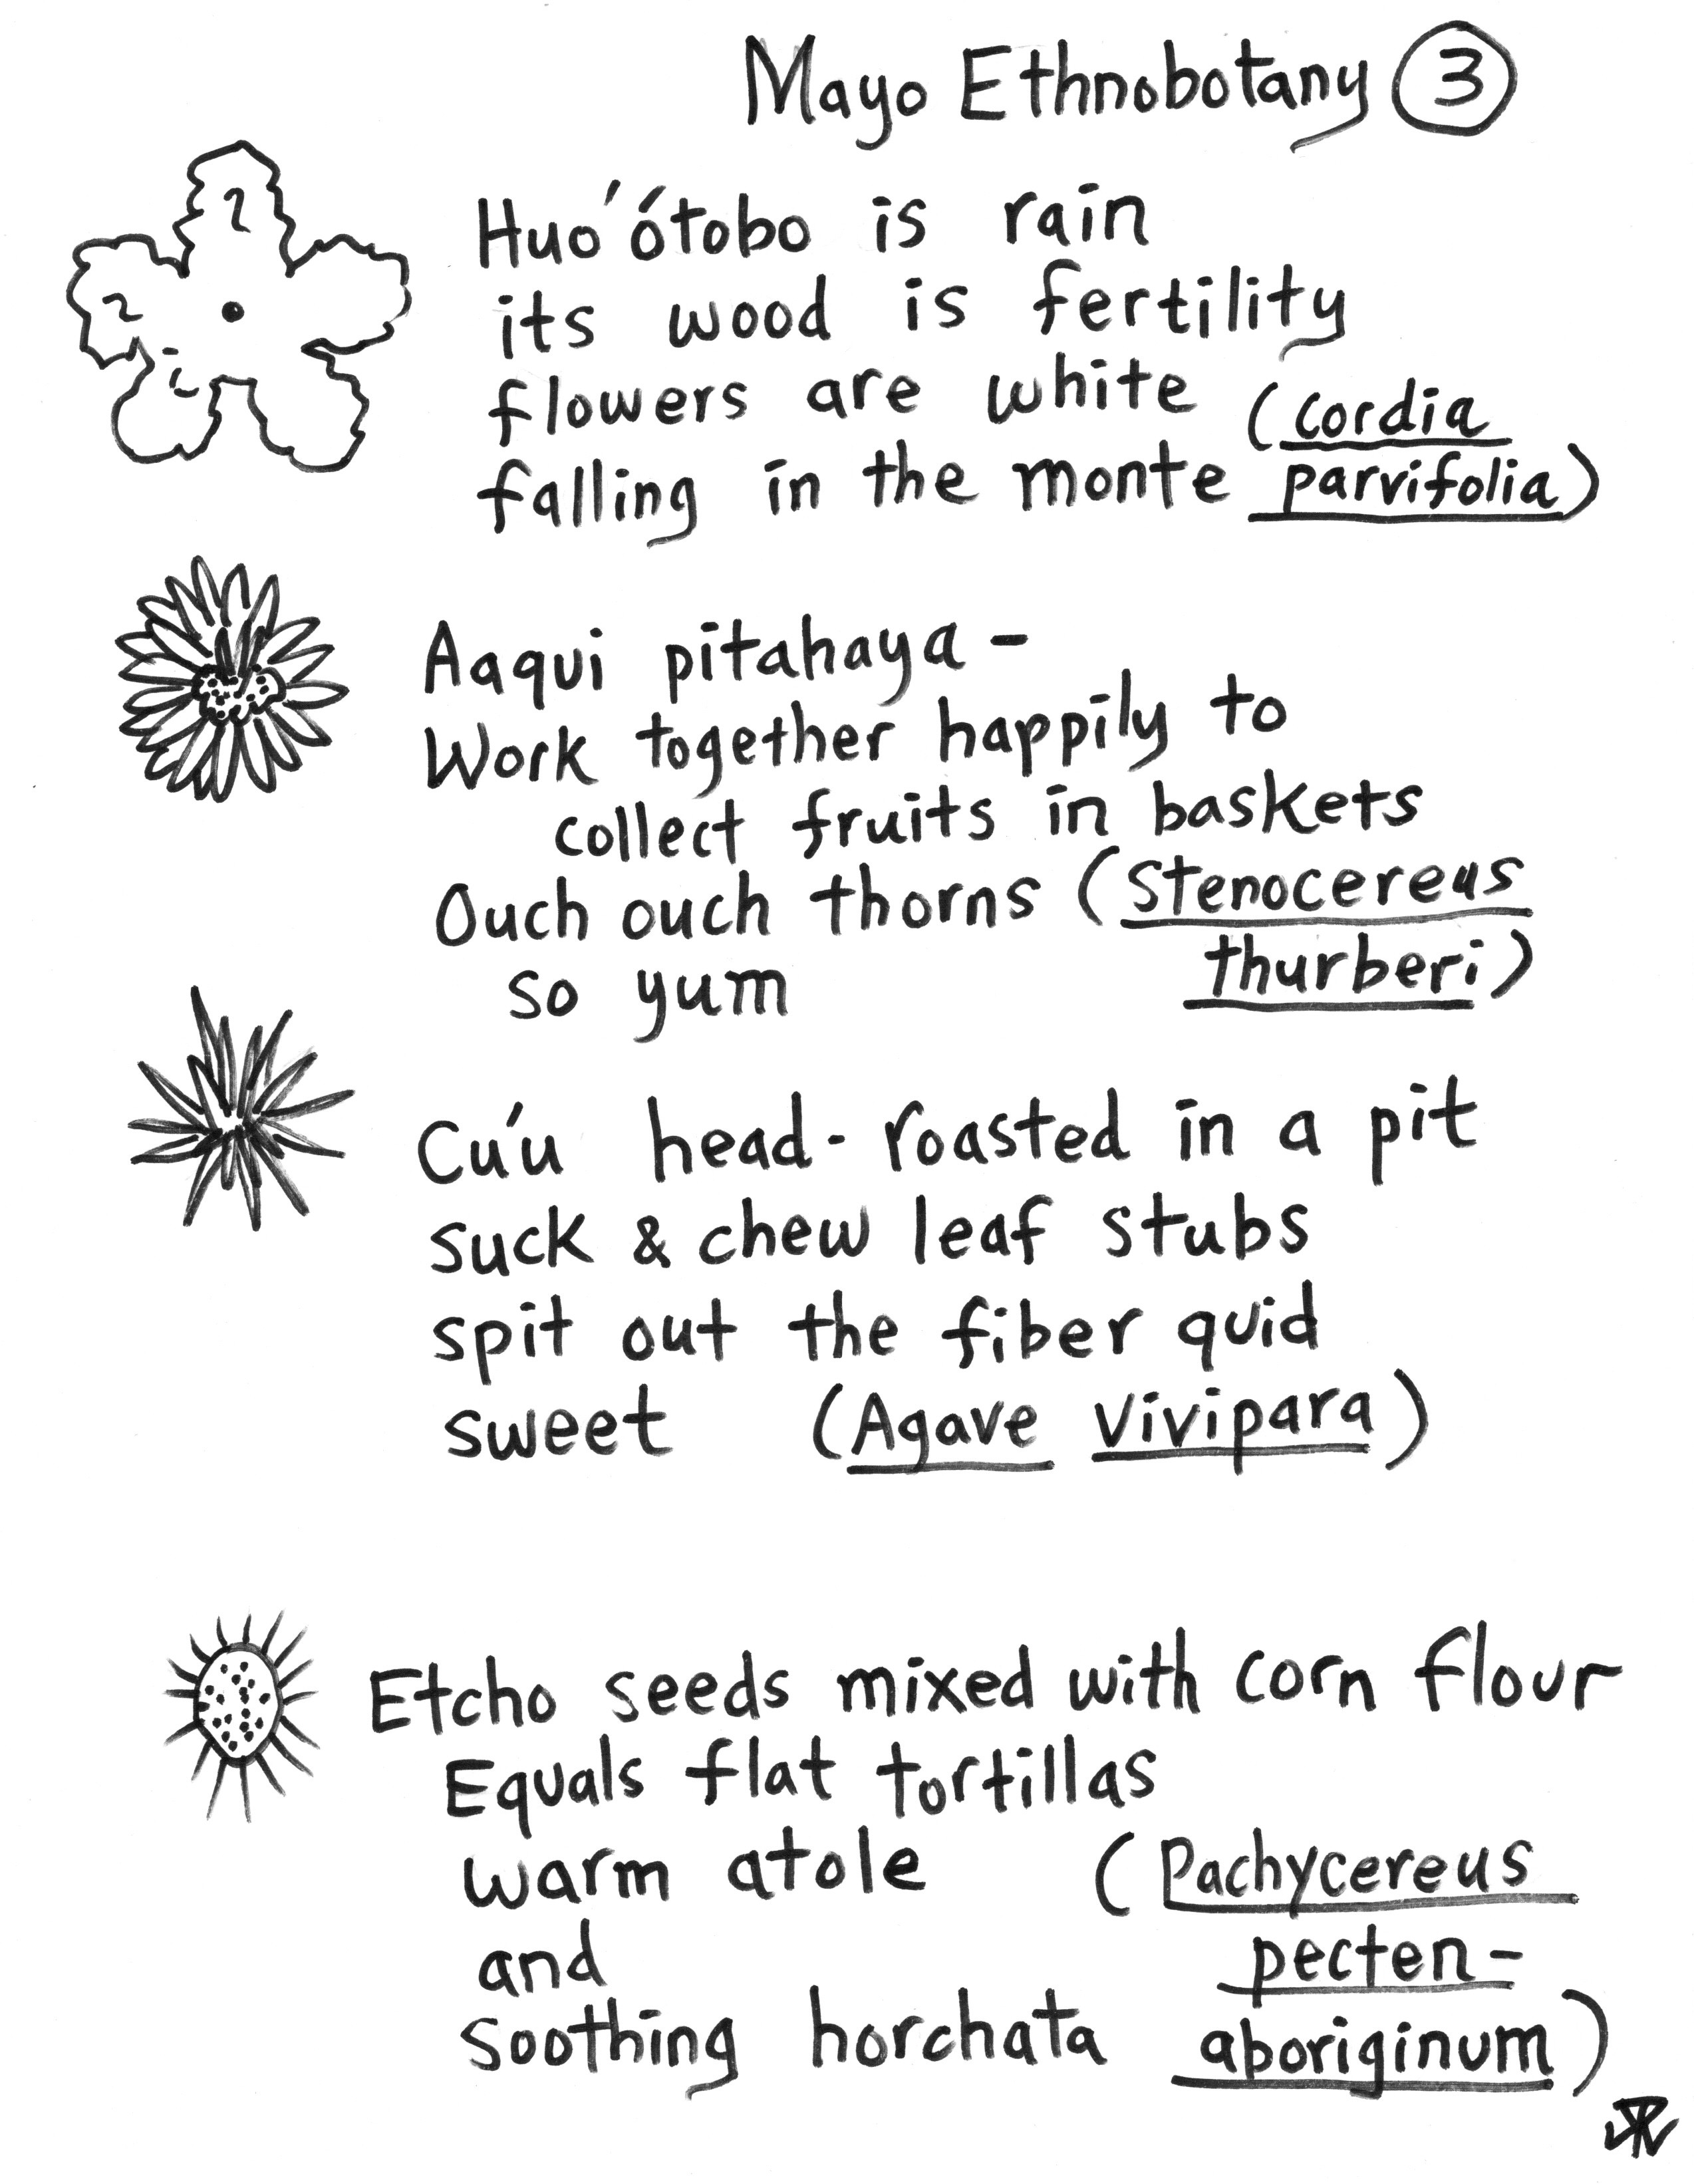 Mayo Ethnobotany 3
Huo'ótobo is rain
its wood is fertility
flowers are white (cordia
falling in the monte parvifolia)
Aaqui pitahaya -
Work together happily to
collect fruits in baskets
Ouch ouch thorns (Stenocereus
so yum thurberi)
Cu'u head-roasted in a pit
suck & chew leaf stubs
spit out the fiber quid
sweet (Agave vivipara)
Etcho seeds mixed with corn flour
Equals flat tortillas
warm atole (Pachycereus
and pecten-
soothing horchata aboriginum)